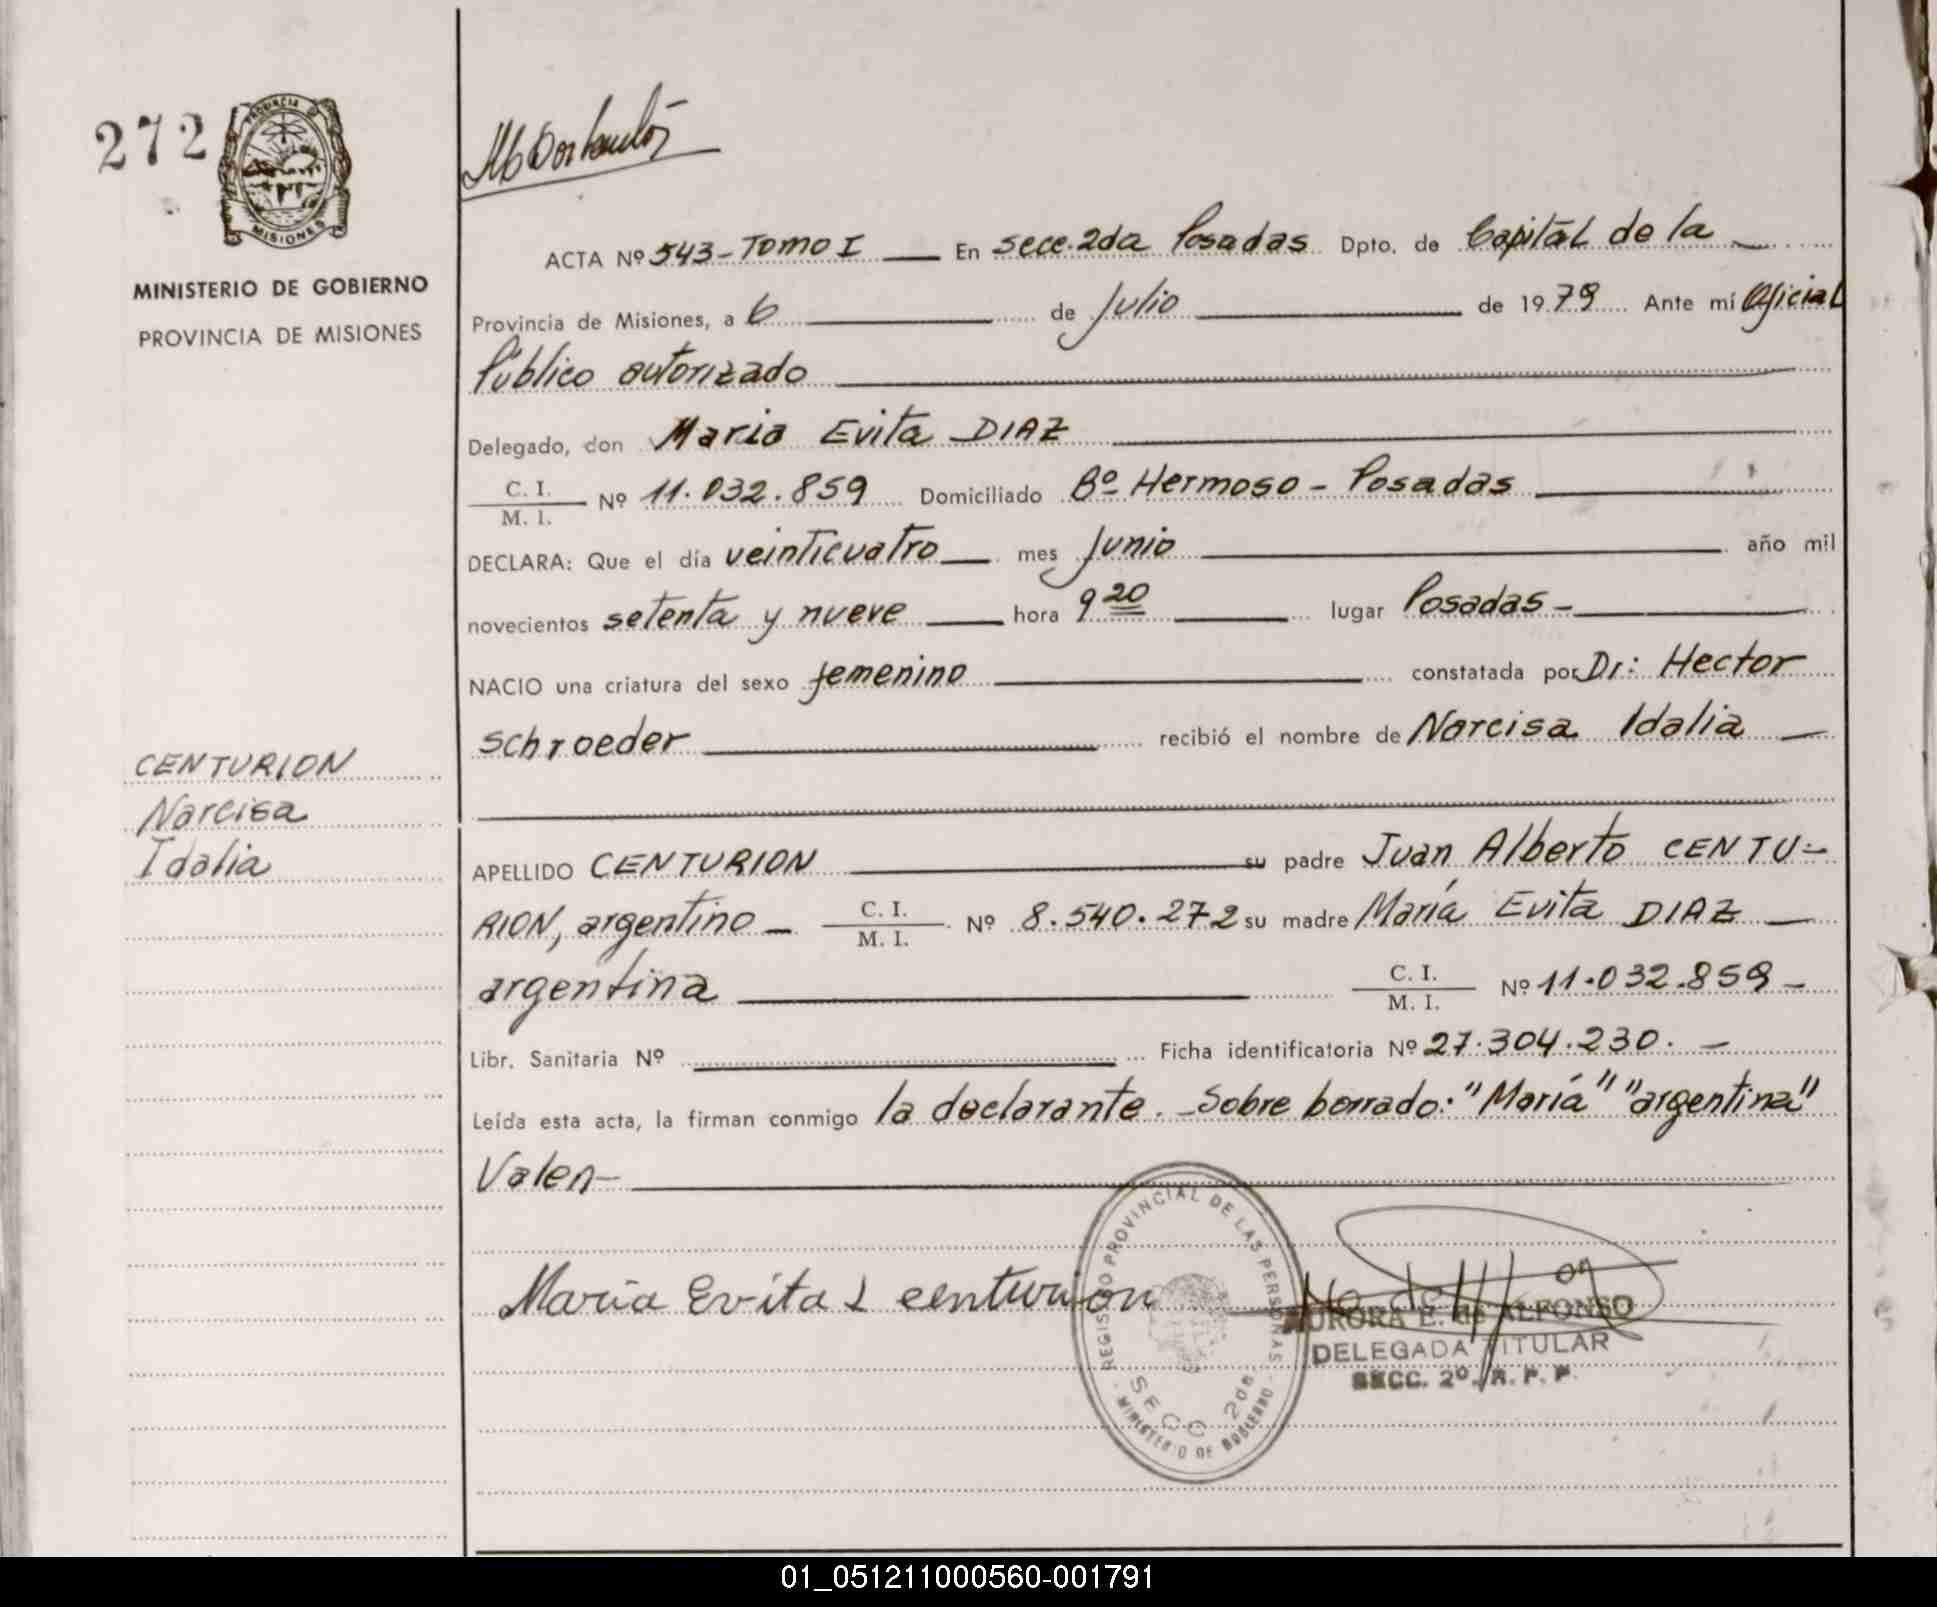 272
PROVINCIA DE
MISIONES
MINISTERIO DE GOBIERNO
PROVINCIA DE MISIONES
ACTA Nº 543-Tomo I En secc. 2da Posadas Dpto. de Capital de la
Provincia de Misiones, a 6 de Julio de 1979 Ante mí Oficial
Público autorizado
Delegado, don Maria Evita DIAZ
C. I.
M. I. Nº 11.032.859 Domiciliado Bº Hermoso - Posadas
DECLARA: Que el día veinticuatro mes Junio año mil
novecientos setenta y nueve hora 9 20 lugar Posadas-
NACIO una criatura del sexo femenino constatada por Dr: Hector
schroeder recibió el nombre de Narcisa Idalia
CENTURION
Narcisa
Idalia
APELLIDO CENTURION su padre Juan Alberto CENTU-
RION, argentino - C. I. M. I. Nº 8.540.272 su madre María Evita DIAZ
argentina C. I. M. I. Nº 11.032.859 -
Libr. Sanitaria Nº Ficha identificatoria Nº 27.304.230. -
Leída esta acta, la firman conmigo la declarante. - Sobre borrado: "María" "argentina"
Valen-
María Evita D centurion
REGISTRO PROVINCIAL DE LAS PERSONAS
SECC 2da.
MINISTERIO DE GOBIERNO
AURORA E. de ALFONSO
DELEGADA TITULAR
SECC. 2º. R. P. P.
01_051211000560-001791